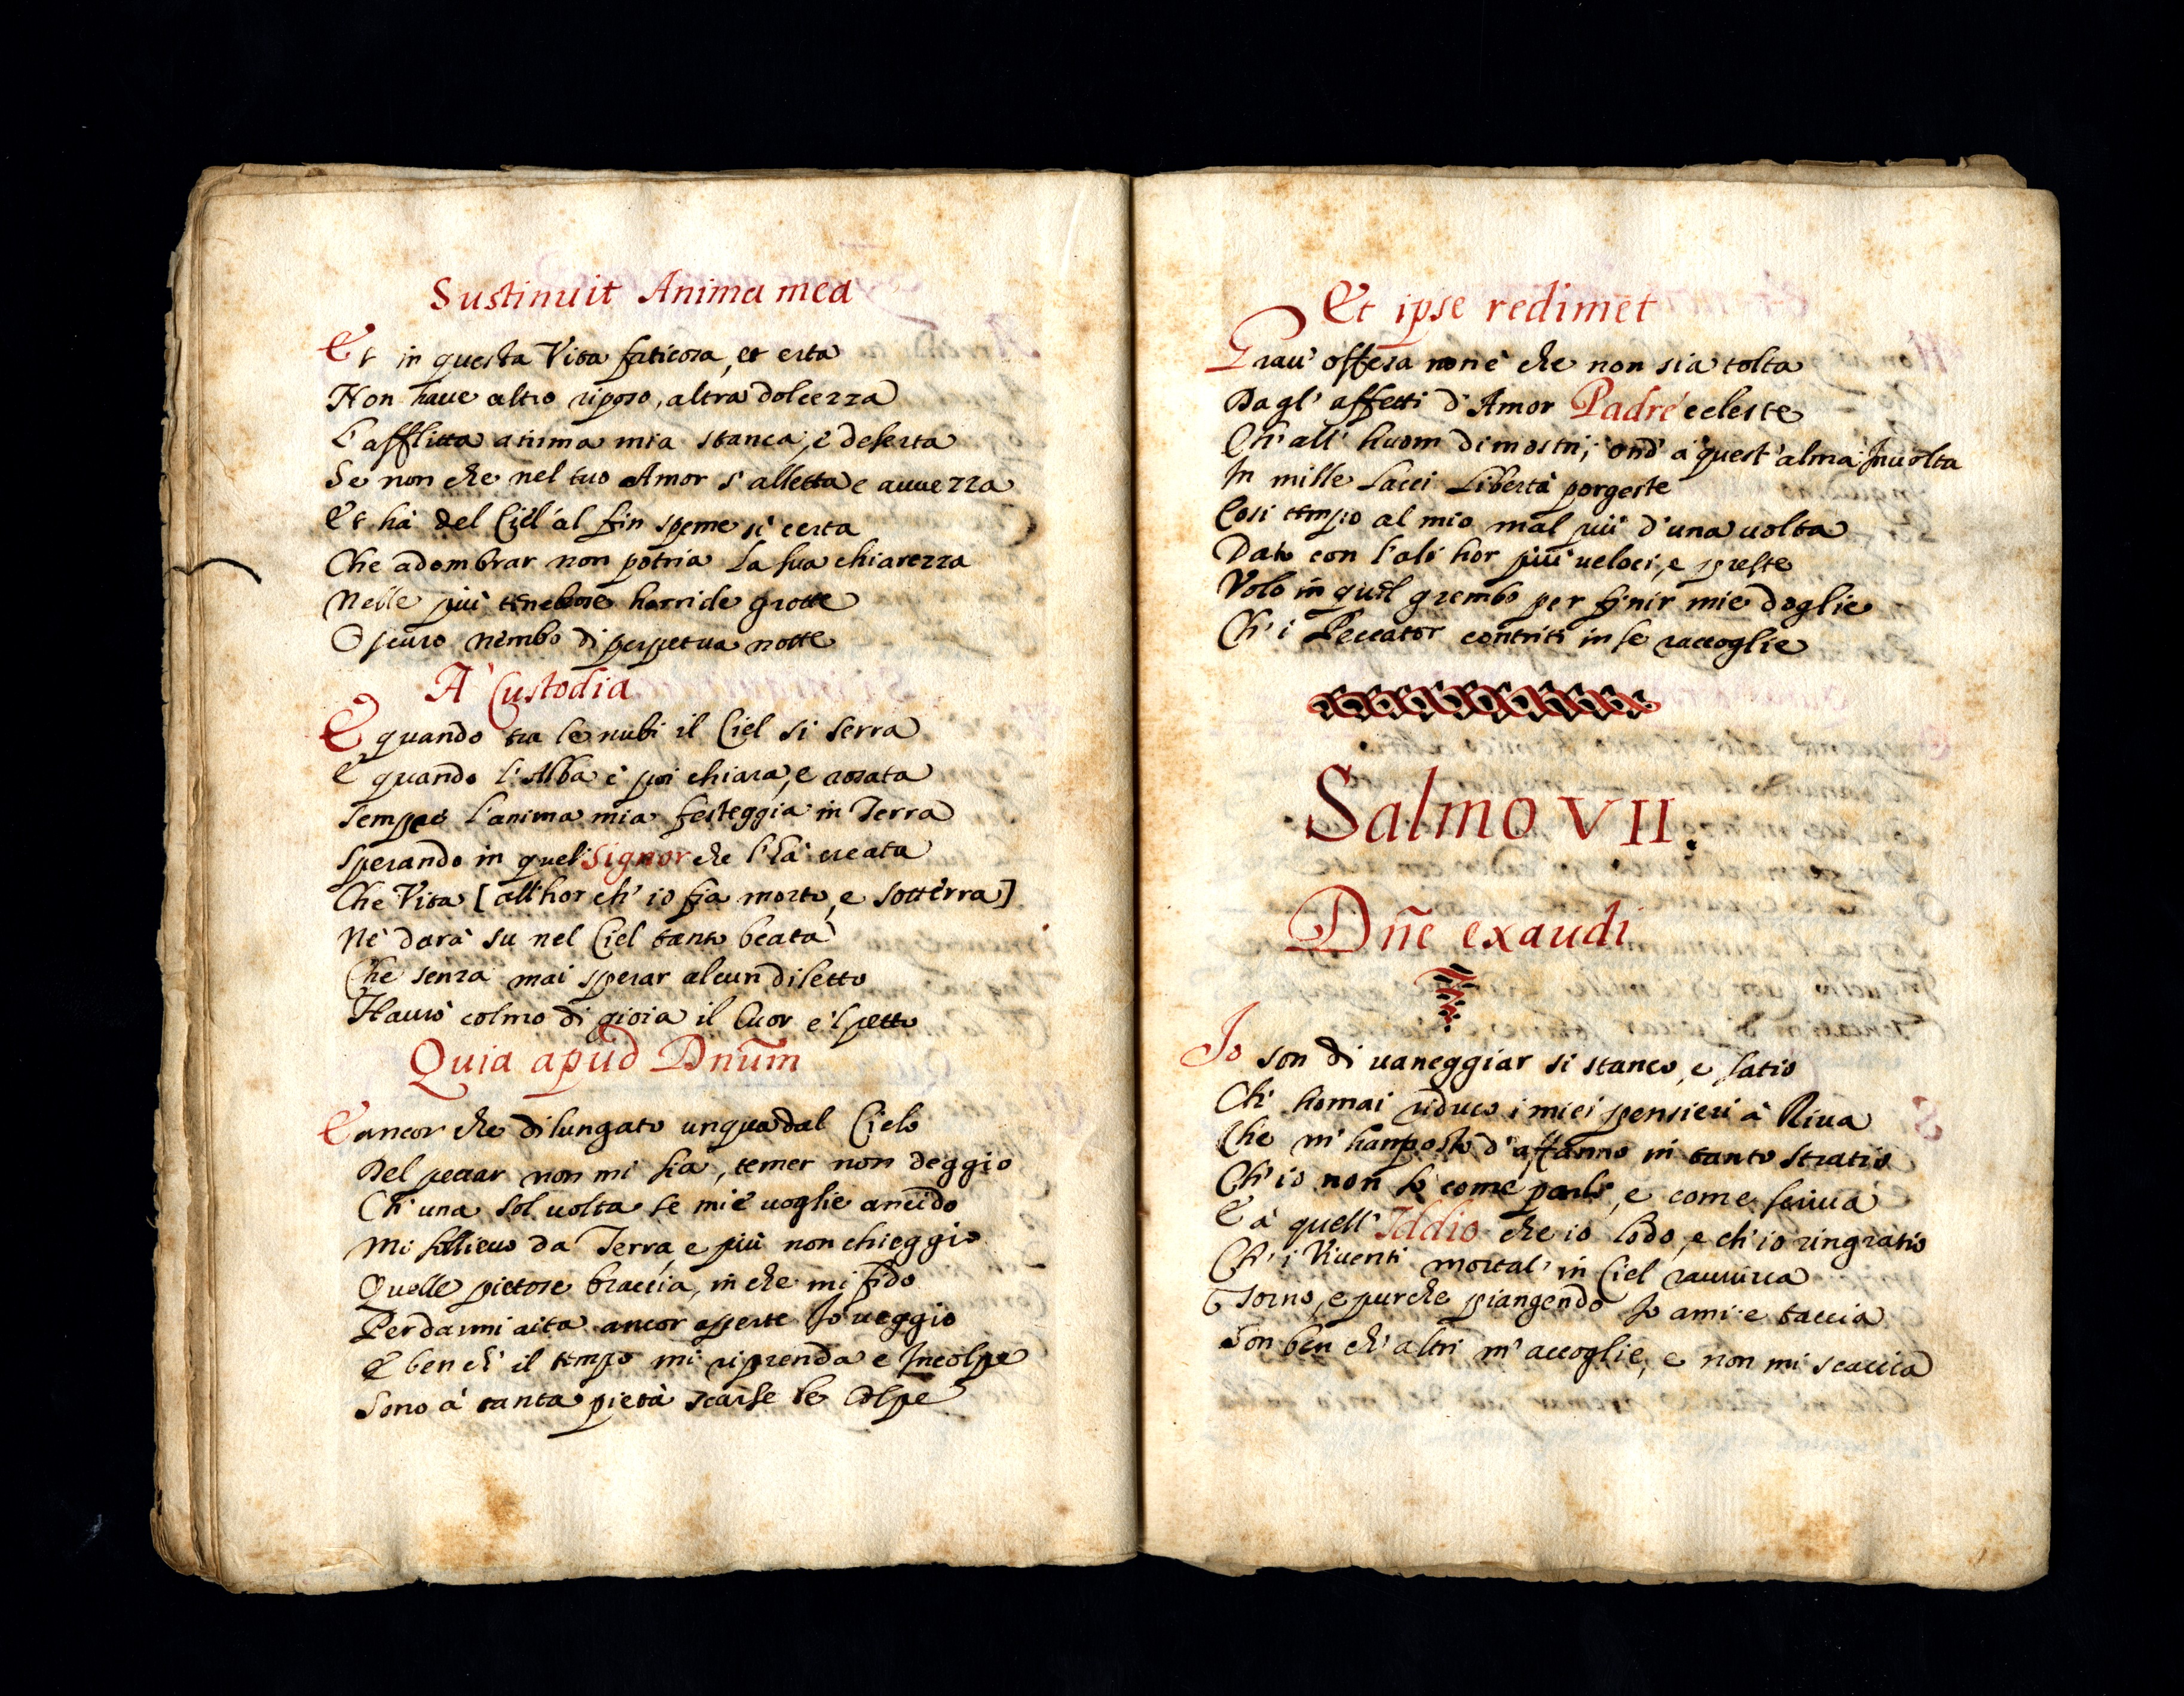 Sustinuit Anima mea
Et in questa Vita faticosa, et erta
Non haue altro riposo, altra dolcezza
L'afflitta anima mia stanca, e deserta
Se non che nel tuo Amor s'alletta e auuezza
Et hà del Ciel al fin speme sì certa
Che adombrar non potria La sua chiarezza
Nelle più tenebrose horride grotte
Oscuro nembo di perpetua notte
A' Custodia
E quando tra le nubi il Ciel si serra
E quando l'Alba è poi chiara, e rosata
Sempre l'anima mia festeggia in Terra
Sperando in quel Signor che l'hà creata
Che Vita [all'hor ch'io sia morto, e sotterra]
Ne darà su nel Ciel tanto beata
Che senza mai sperar alcun diletto
Haurò colmo di gioia il Cuor e'l petto
Quia apud Dnum̄
E ancor che dilungato unqua dal Cielo
Del peccar non mi sia, temer non deggio
Ch'una sol uolta se mie uoglie ancido
Mi solleuo da Terra, e più non chieggio
Quelle pietose braccia, in che mi fido
Per darmi aita ancor aperte Io ueggio
E ben ch'il tempo mi riprenda e Incolpe
Sono à tanta pietà scarse le Colpe
Et ipse redimet
Grau' offesa non è che non sia tolta
Dagl' affetti d'Amor Padre celeste
Ch'all' huom dimostri, ond' à quest'alma Inuolta
In mille Lacci Libertà porgeste
Così tempo al mio mal più d'una uolta
Dato con l'ali hor più ueloci, e preste
Volo in quel grembo per finir mie doglie
Ch'i Peccator contriti in se raccoglie
Salmo VII.
Dñe exaudi
Io son di uaneggiar si stanco, e satio
Ch' homai riduco i miei pensieri à Riua
Che m'han posto d'affanno in tanto stratio
Ch'io non sò come parli, e come scriua
E à quell' Iddio che io lodo, e ch'io ringratio
Ch'i Viuenti mortal' in Ciel rauuiua
Torno, e purche piangendo Io ami e taccia
Son ben ch'altri m'accoglie, e non mi scaccia